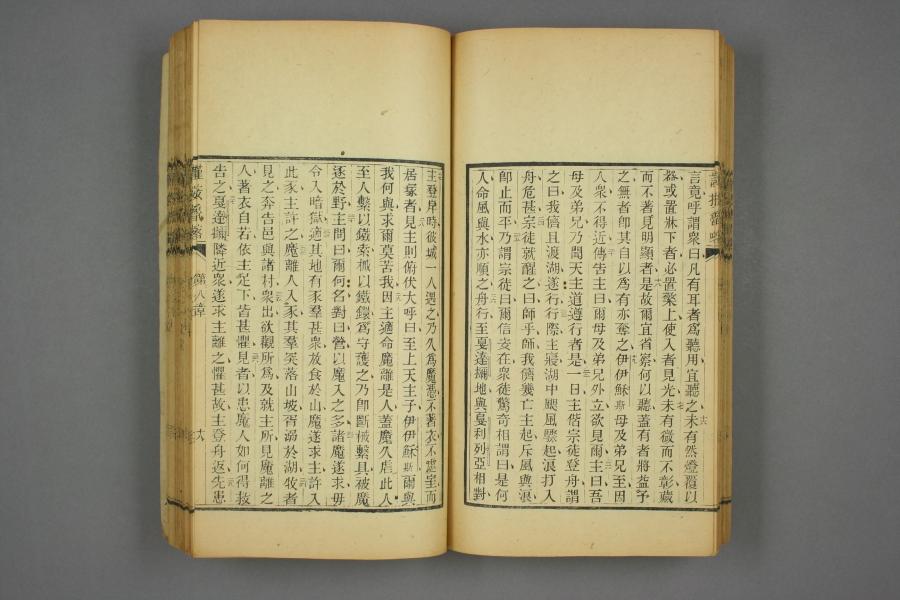 言竟呼謂衆曰凡有耳者爲聽用宜聽之未有然燈覆以
器或置牀下者必置檠上使入者見光未有微而不彰藏
而不著見明顯者是故爾宜省察何以聽蓋有者將益予
之無者卽其自以爲有亦奪之伊伊穌斯母及弟兄至因
人衆不得近傳告主曰爾母及弟兄外立欲見爾主曰吾
母及弟兄乃聞天主道遵行者是一日主偕宗徒登舟謂
之曰我儕且渡湖遂行行際主寢湖中颶風驟起浪打入
舟危甚宗徒就醒之曰師乎師我儕幾亡主起斥風與浪
卽止而平乃謂宗徒曰爾信安在衆徒驚奇相謂曰是何
人命風與水亦順之舟行至戛達地與戛利列亞相對
主登岸時彼城一人遇之乃久爲魔憑不著衣不處室而
居塚者見主則俯伏大呼曰至上天主子伊伊穌斯爾與
我何與求爾莫苦我因主適命魔離是人蓋魔久虐此人
至人繫以鐵索械以鐵鐐爲守護之乃卽斷械繫具被魔
逐於野主問曰爾何名對曰營以魔入之多諸魔遂求毋
令入暗獄適其地有豕羣甚衆放食於山魔遂求主許入
此豕主許之魔離人入豕其羣突落山坡胥溺於湖牧者
見之奔告邑與諸村衆出欲觀所爲及就主所見魔離之
人著衣自若依主足下皆甚懼見者以患魔人如何得救
告之戛達隣近衆遂求主離之懼甚故主登舟返先患
第八章